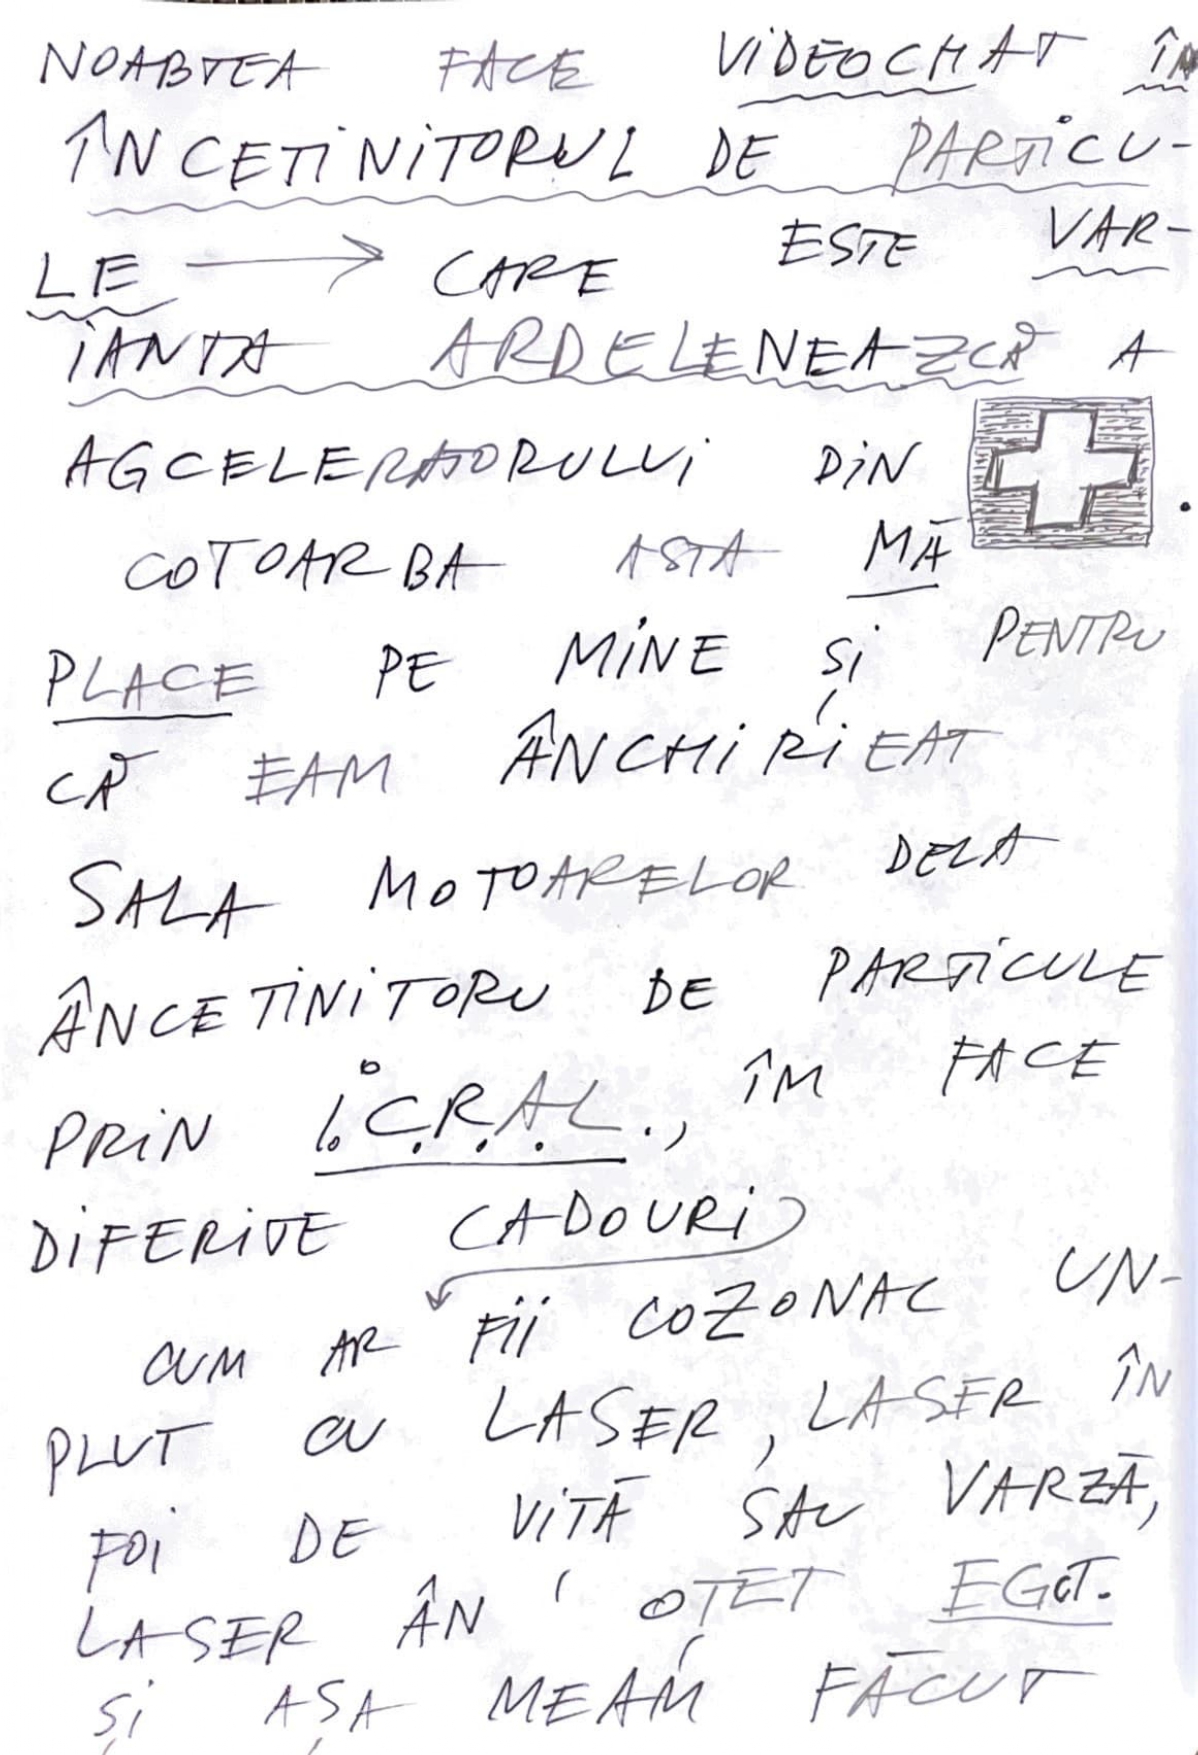 NOABTEA FACE VIDEOCHAT ÎN
ÎNCETINITORUL DE PARTICU-
LE → CARE ESTE VAR-
IANTA ARDELENEAZCĂ A
AGCELERATORULUI DIN
COTOARBA ASTA MĂ
PLACE PE MINE ȘI PENTRU
CĂ EAM ÂNCHIRIEAT
SALA MOTOARELOR DELA
ÂNCETINITORU DE PARTICULE
PRIN I.C.R.A.L., ÎM FACE
DIFERITE CADOURI
CUM AR FII COZONAC UN-
PLUT CU LASER, LASER ÎN
FOI DE VIȚĂ SAU VARZĂ,
LASER ÂN OȚET EGCT.
ȘI AȘA MEAM FĂCUT